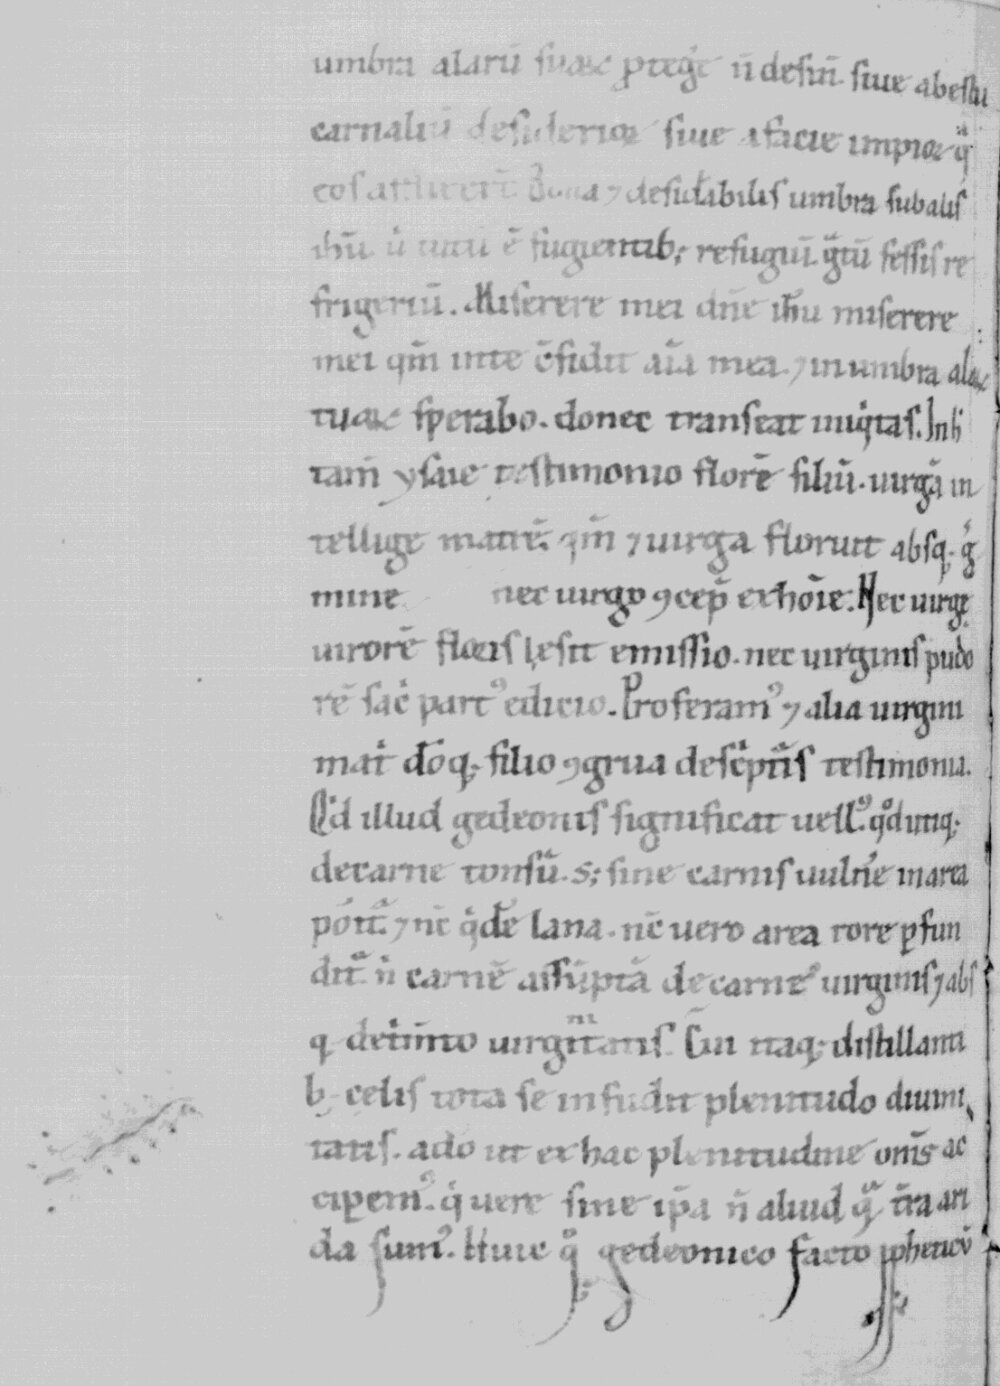 umbra alarū suaꝝ ꝓteg̃e n̄ desin̄ siue ab estu
carnaliū desiderioꝝ siue a facie impioꝝ q̇
eos afflixerūt Bona ⁊ desid̓abilis umbra sub alis
ih̄u u̇ tutū ē fugientib; refugiū. g̃tū fessis re
frigeriū. Miserere mei dn̄e ih̄u miserere
mei qm̄ in te c̄fidit aīa mea. ⁊ in umbra alaꝝ
tuaꝝ sperabo. donec transeat iniq̇tas. In h̓
tam̄ ysaie testimonio florē filiū. uirgā in
tellige matrē. qm̄ ⁊ uirga floruit absq. g̓
mine nec uirgo ꝯcep̄ ex hoīe. Nec uirge
uirorē floris lesit emissio. nec uirginis pudo
rē sac̓ partꝰ edicio. Proferamꝰ ⁊ alia uirgini
mat̓ d̄oq. filio ꝯgrua desc̓pt̃is testimonia.
Q̇d illud gedeonis significat uellꝰ. qd̊ utiq.
de carne tonsū. s; sine carnis uuln̓e in area
pōit̃. ⁊ nc̄ q̇dē lana. nc̄ uero area rore ꝑfun
dit̃. n̓ carnē assūptā de carne uirginis ⁊ abs
q det̓im̄to uirginitatis. Cui itaq; distillanti
b; celis tota se infudit plenitudo diuini
tatis. adeo ut ex hac plenitudine om̄s ac
cipemꝰ. q̇ uere sine ip̄a n̄ aliud q̃ t̄ra ari
da sumꝰ. Huic q̊ꝗ gedeonico facto ꝓpheticū